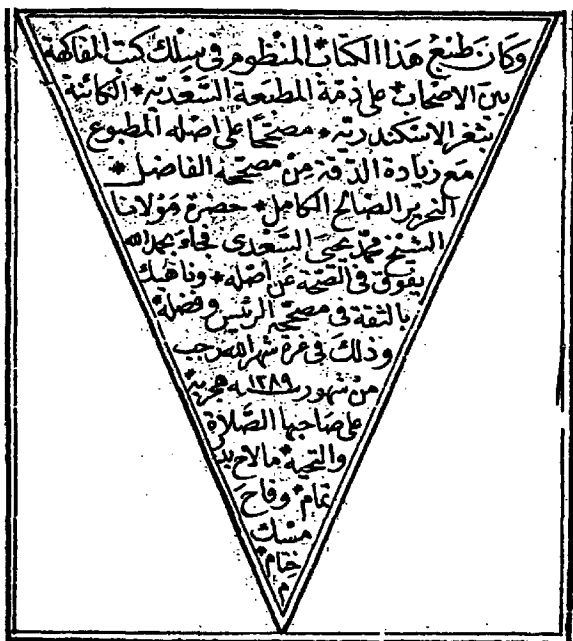 وكان طبع هذا الكتاب المنظوم في سلك كتب المفاكهة
بين الاصحاب * على ذمة المطبعة السعدية * الكائنة
بثغر الاسكندرية * مصححا على اصله المطبوع
مع زيادة الدقة من مصححه الفاضل *
النحرير الصالح الكامل * حضرة مولانا
الشيخ محمد يحيى السعدى فجاء بحمد الله
يفوق في الصحة عن اصله * وناهيك
بالثقة فى مصححه الرئيس وفضله *
وذلك فى غرة شهر الله رجب
من شهور سنة ١٢٨٩ هجرية
على صاحبها الصلاة
والتحية * ما لاح بدر
تمام * وفاح
مسك
ختام *
م